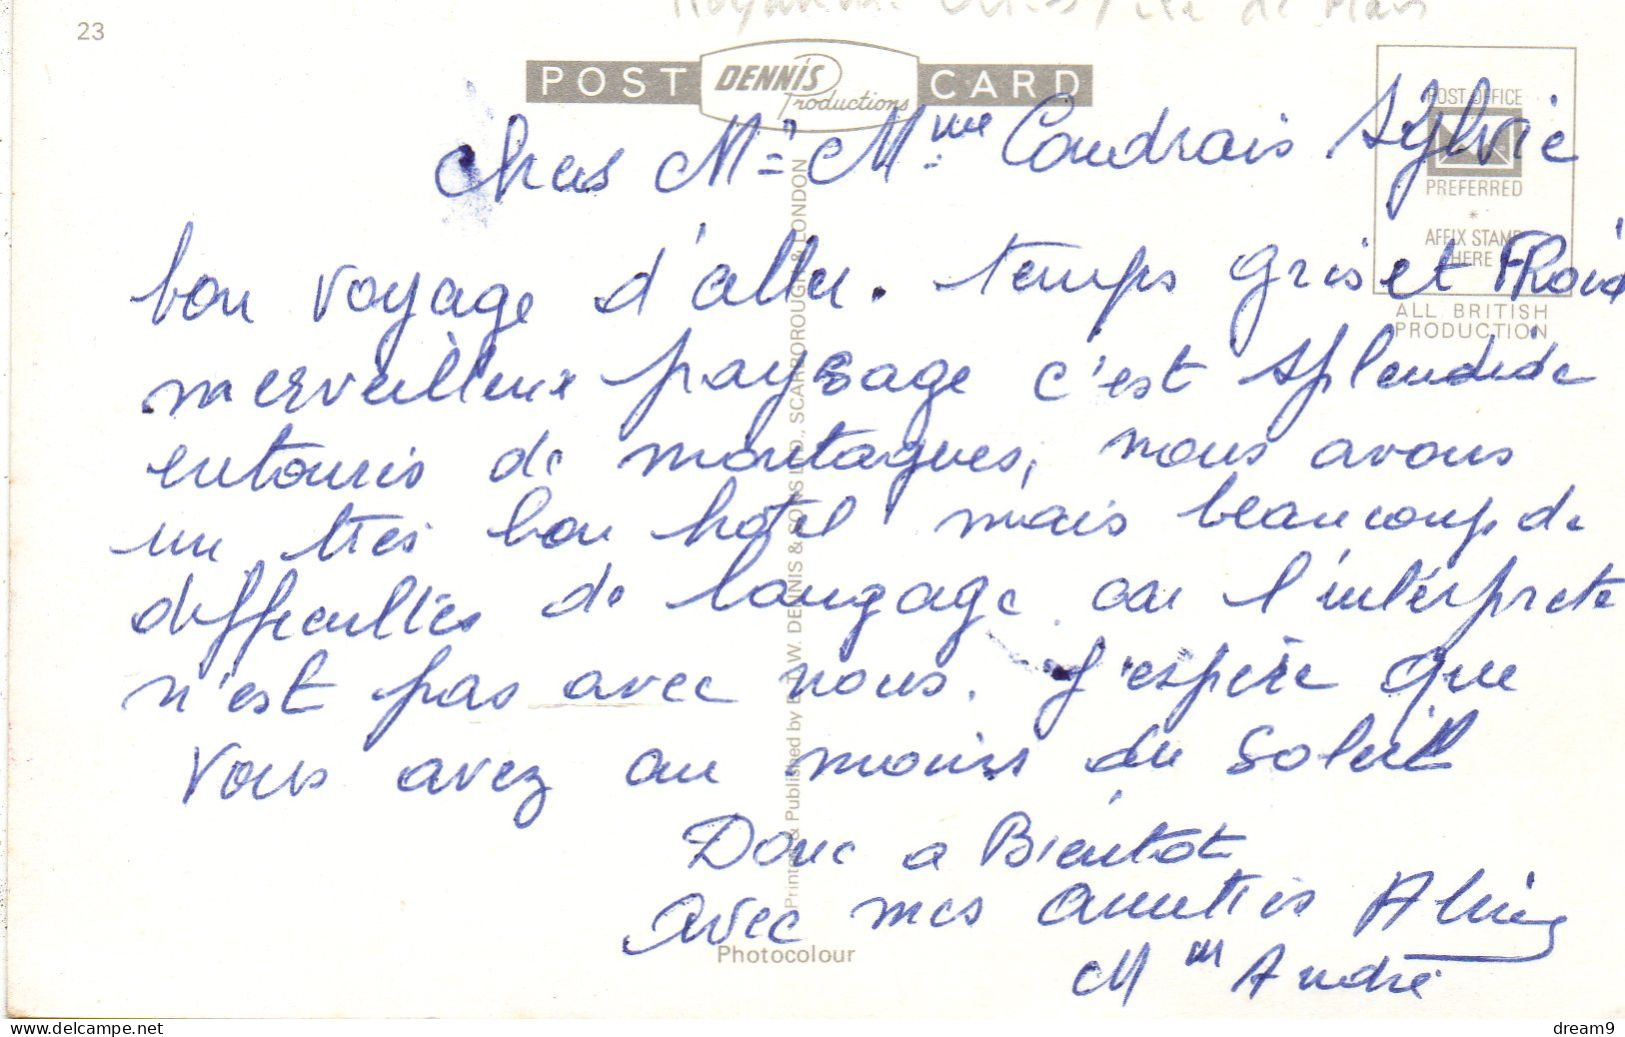 23
Royaume Unis / île de Man
POST DENNIS Productions CARD
POST OFFICE
PREFERRED
*
AFFIX STAMP
HERE
ALL BRITISH
PRODUCTION
Chers Mr Mme Coudrais Sylvie
bon voyage d'aller. temps gris et Froid
merveilleux paysage c'est splendide
entouris de montagnes, nous avons
un très bon hôtel mais beaucoup de
difficultés de langage car l'intérprete
n'est pas avec nous. J'espère que
vous avez au moins du soleil
Donc a Bientot
avec mes amitiés
Mm André
Printed & Published by E.T.W. DENNIS & SONS LTD., SCARBOROUGH & LONDON
Photocolour
www.delcampe.net
dream9